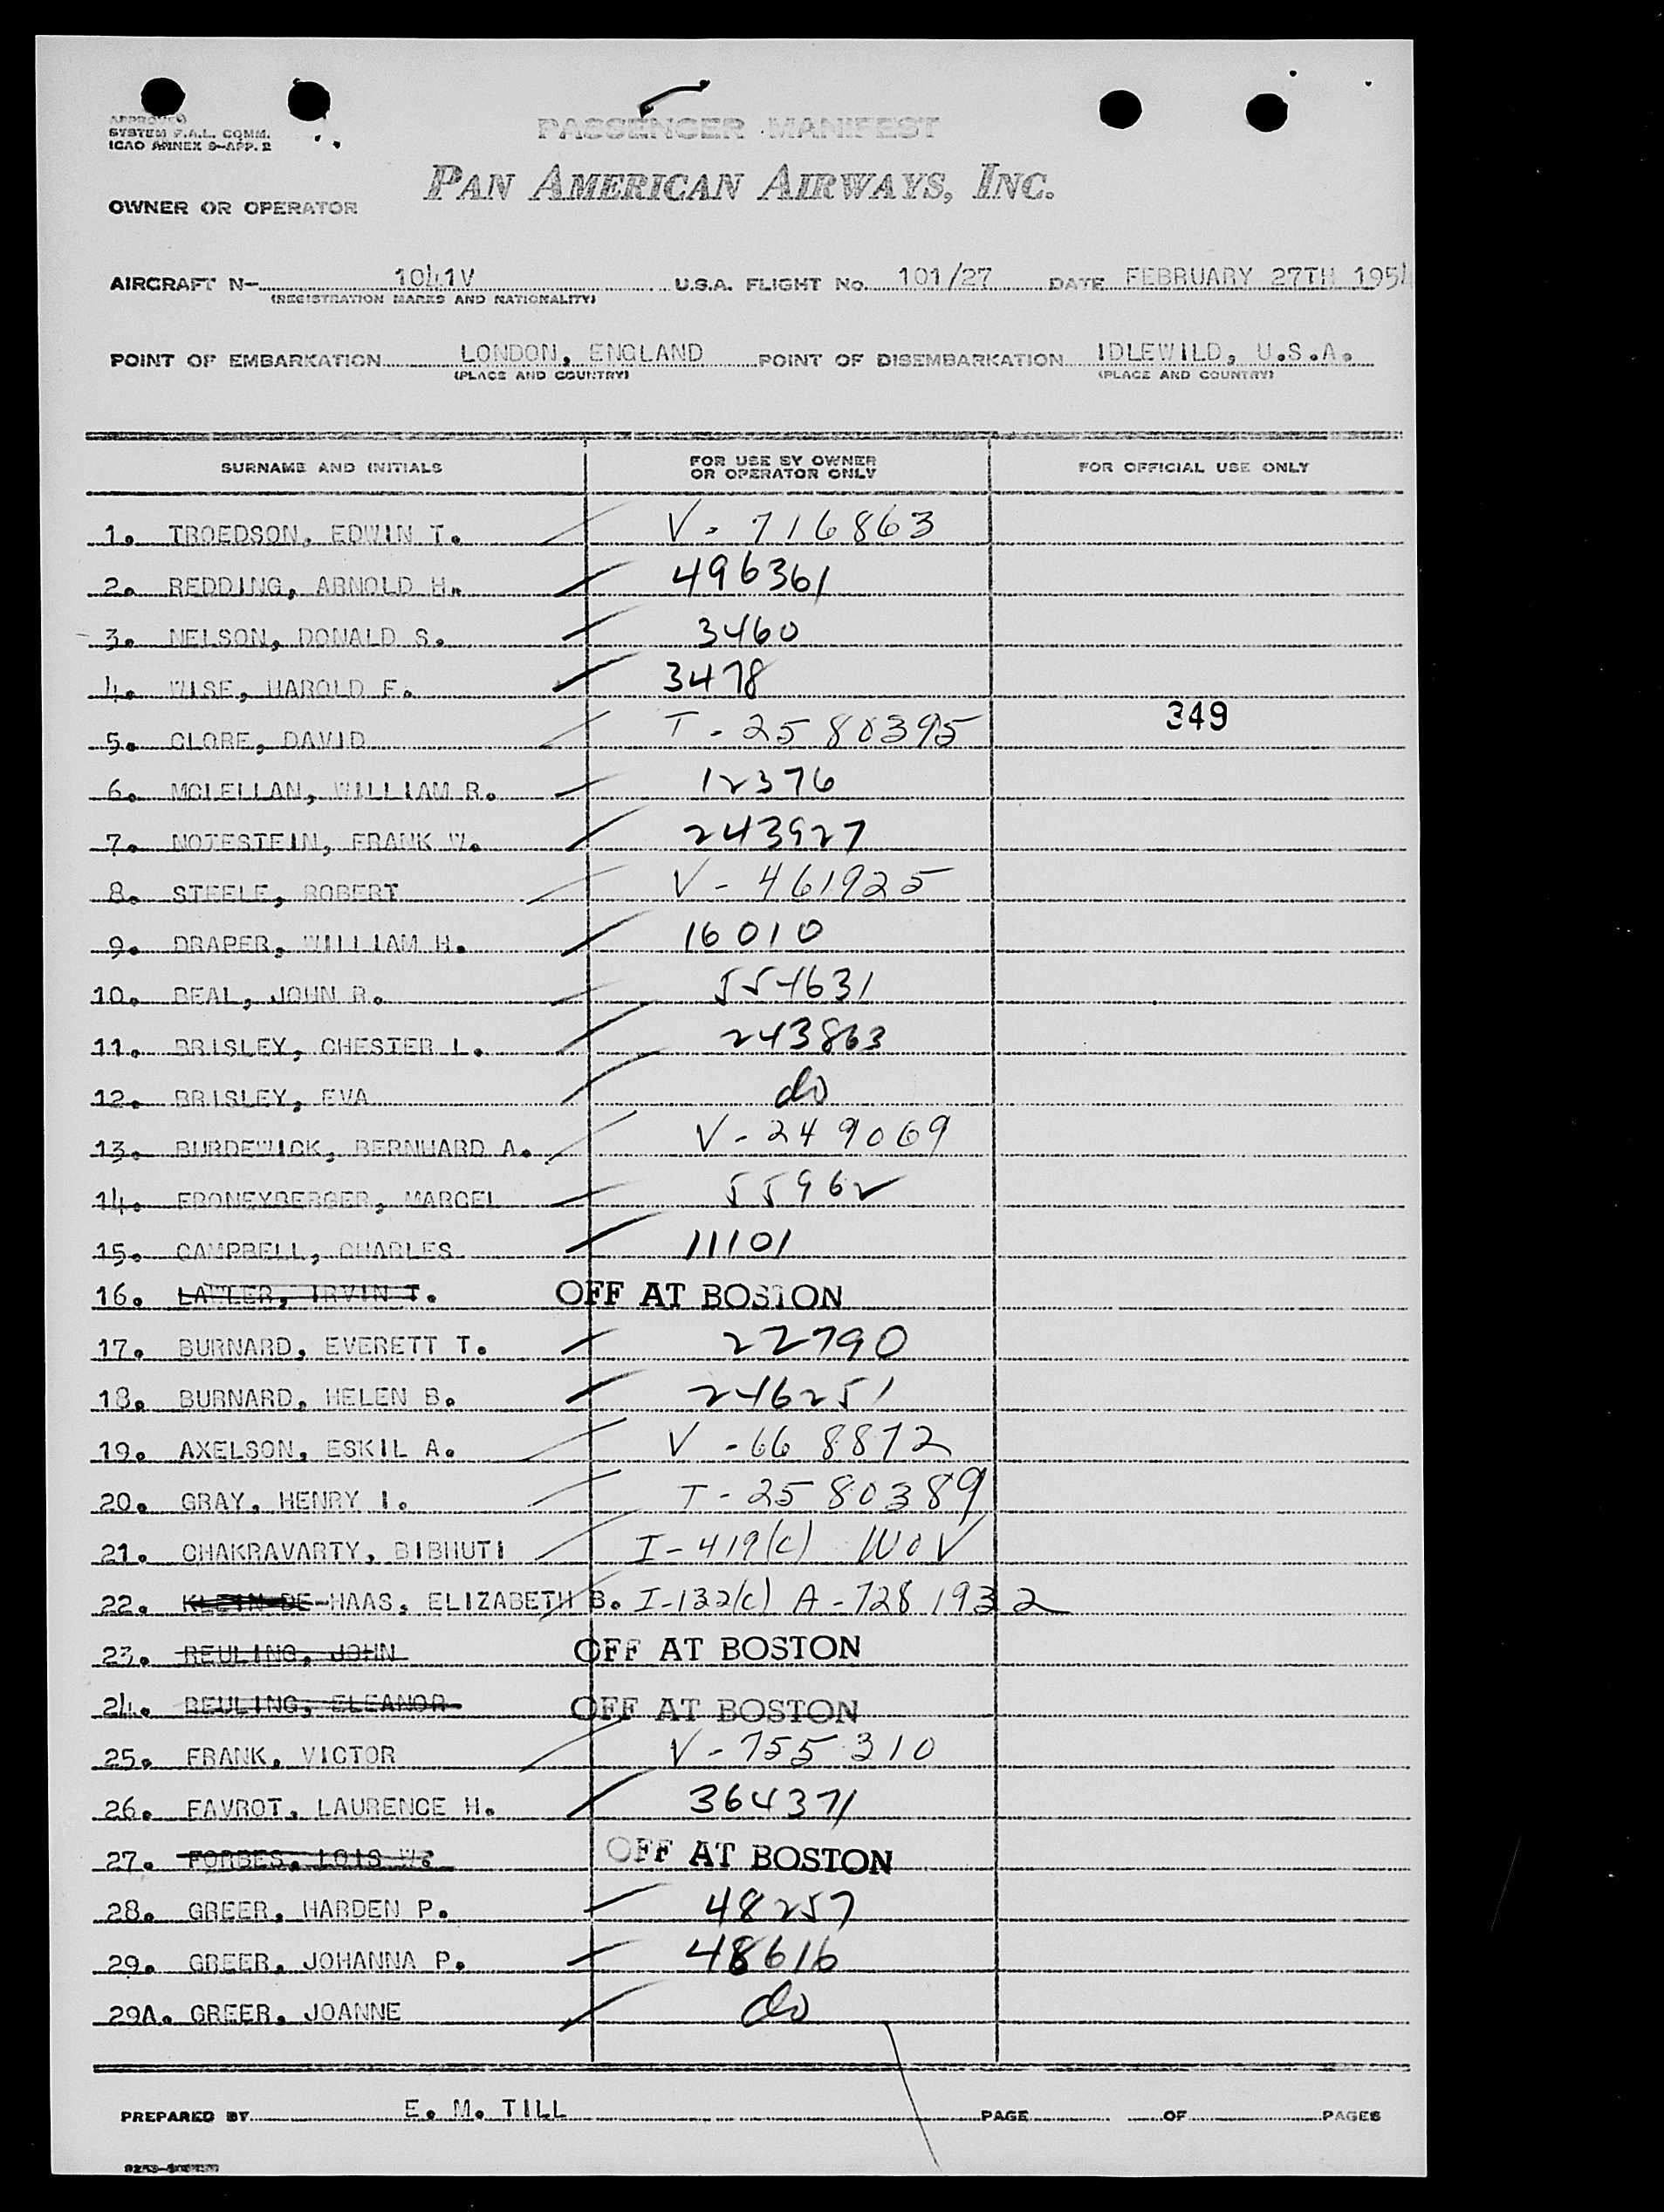 APPROVED
SYSTEM F.A.L. COMM.
ICAO ANNEX 9-APP. 2
PASSENGER MANIFEST
PAN AMERICAN AIRWAYS, INC.
OWNER OR OPERATOR
AIRCRAFT N- 1041V U.S.A. FLIGHT No. 101/27 DATE FEBRUARY 27TH 1954
(REGISTRATION MARKS AND NATIONALITY)
POINT OF EMBARKATION LONDON, ENGLAND POINT OF DISEMBARKATION IDLEWILD, U.S.A.
(PLACE AND COUNTRY) (PLACE AND COUNTRY)
SURNAME AND INITIALS FOR USE BY OWNER OR OPERATOR ONLY FOR OFFICIAL USE ONLY
1. TROEDSON, EDWIN T. V-716863
2. REDDING, ARNOLD H. 496361
3. NELSON, DONALD S. 3460
4. WISE, HAROLD F. 3478
349
5. CLORE, DAVID T-2580395
6. MCLELLAN, WILLIAM R. 12376
7. NOTESTEIN, FRANK W. 243927
8. STEELE, ROBERT V-461925
9. DRAPER, WILLIAM H. 16010
10. BEAL, JOHN R. 554631
11. BRISLEY, CHESTER L. 243863
12. BRISLEY, EVA do
13. BURDEWICK, BERNHARD A. V-249069
14. FRONEYBERGER, MARCEL 55962
15. CAMPBELL, CHARLES 11101
16. LAWLER, IRVIN T. OFF AT BOSTON
17. BURNARD, EVERETT T. 22790
18. BURNARD, HELEN B. 246251
19. AXELSON, ESKIL A. V-668872
20. GRAY, HENRY I. T-2580389
21. CHAKRAVARTY, BIBHUTI I-419(c) WOV
22. KLEIN DE-HAAS, ELIZABETH B. I-132(c) A-7281932
23. REULING, JOHN OFF AT BOSTON
24. REULING, ELEANOR OFF AT BOSTON
25. FRANK, VICTOR V-755310
26. FAVROT, LAURENCE H. 364371
27. FORBES, LOIS W. OFF AT BOSTON
28. GREER, HARDEN P. 48257
29. GREER, JOHANNA P. 48616
29A. GREER, JOANNE do
PREPARED BY E. M. TILL PAGE OF PAGES